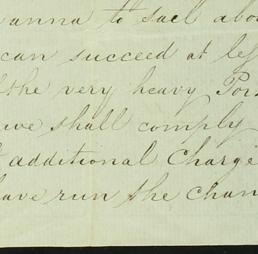 vanna to sail abo
can succeed at le
the very heavy Por
we shall comply
additional Charge
have run the chan